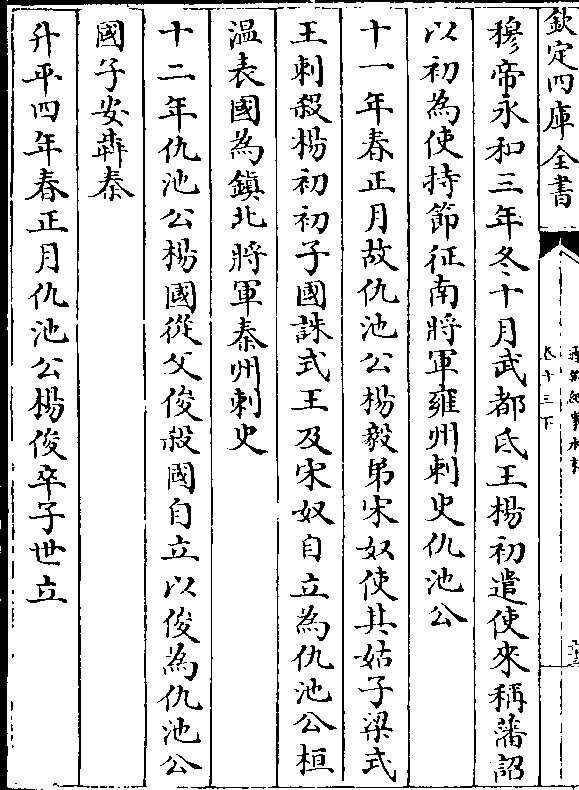 欽定四庫全書
卷十三下
穆帝永和三年冬十月武都氐王楊初遣使來稱藩詔
以初為使持節征南將軍雍州刺史仇池公
十一年春正月故仇池公楊毅弟宋奴使其姑子梁式
王刺殺楊初初子國誅式王及宋奴自立為仇池公桓
温表國為鎮北將軍秦州刺史
十二年仇池公楊國從父俊殺國自立以俊為仇池公
國子安奔秦
升平四年春正月仇池公楊俊卒子世立